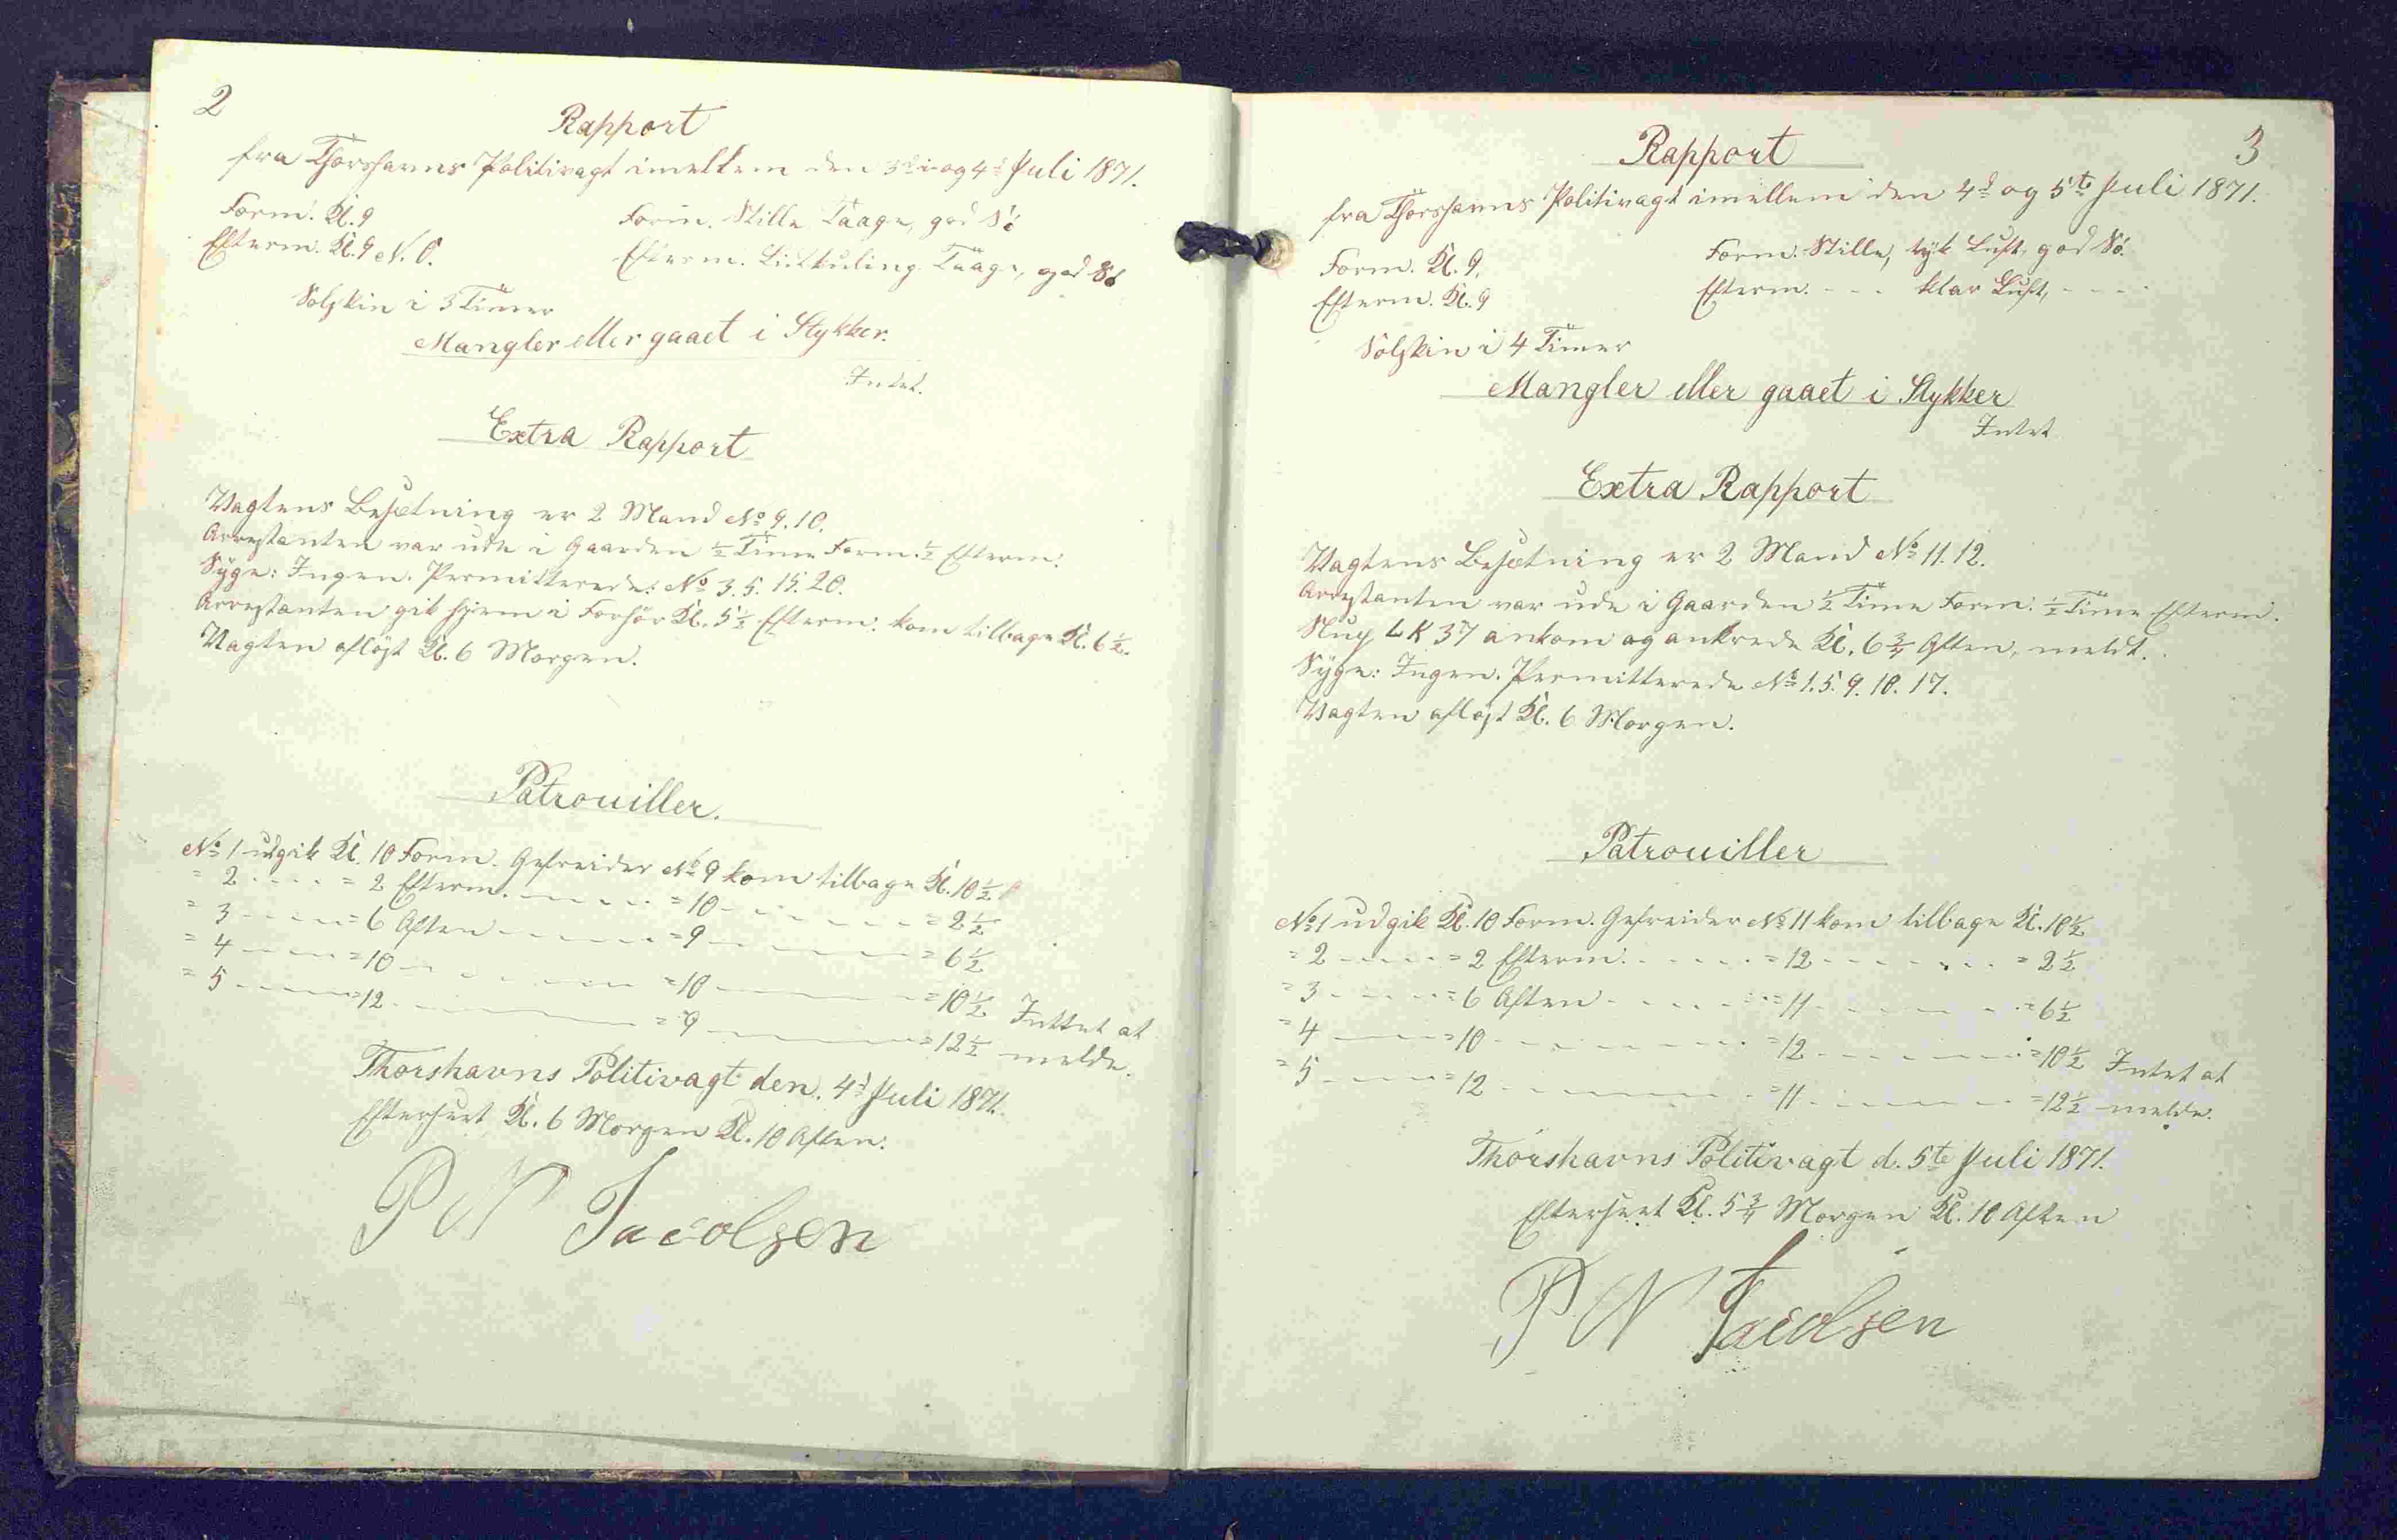 2
Rapport
fra Thorshavns Politivagt imellem den 3d og 4d Juli 1871.
Form. Kl. 9 Form. Stille Taage, god Sö
Efterm. Kl. 9 N.O. Efterm. Lidt kuling Taage, god Sö
Solskin i 3 Timer
Mangler eller gaaet i Stykker.
Intet.
Extra Rapport
Vagtens Besætning er 2 Mand No 9. 10.
Arrestanten var ude i Gaarden ½ Time Form. ½ Efterm.
Syge: Ingen. Permitterede: No 3. 5. 15. 20.
Arrestanten gik hjem i Forhör Kl. 5½ Efterm. kom tilbage Kl. 6½.
Vagten aflöst Kl. 6 Morgen.
Patrouiller.
No 1 udgik Kl. 10 Form. Gefreider No 9 kom tilbage Kl. 10½
= 2 - - - - = 2 Efterm. - - - - = 10 - - - - - - = 2½
= 3 - - - - = 6 Aften - - - - = 9 - - - - - - = 6½
= 4 - - - - = 10 - - - - - - = 10 - - - - - - = 10½ Intet at
= 5 - - - - = 12 - - - - - - = 9 - - - - - - = 12½ melde.
Thorshavns Politivagt den. 4d Juli 1871.
Efterseet Kl. 6 Morgen Kl. 10 Aften.
P N Jacobsen
3
Rapport
fra Thorshavns Politivagt imellem den 4d og 5te Juli 1871.
Form. Kl. 9. Form. Stille, tyk Luft, god Sö.
Efterm. Kl. 9 Efterm. - - - klar Luft, - - - -
Solskin i 4 Timer
Mangler eller gaaet i Stykker
Intet
Extra Rapport
Vagtens Besætning er 2 Mand No 11. 12.
Arrestanten var ude i Gaarden ½ Time Form. ½ Time Efterm.
Slup LK 37 ankom og ankrede Kl. 6¾ Aften, meldt.
Syge: Ingen. Permitterede No 1. 5. 9. 10. 17.
Vagten aflöst Kl. 6 Morgen.
Patrouiller
No 1 udgik Kl. 10 Form. Gefreider No 11 kom tilbage Kl. 10½
= 2 - - - - = 2 Efterm. - - - - = 12 - - - - - - = 2½
= 3 - - - - = 6 Aften - - - - = 11 - - - - - - = 6½
= 4 - - - - = 10 - - - - - - = 12 - - - - - - = 10½ Intet at
= 5 - - - - = 12 - - - - - - = 11 - - - - - - = 12½ melde.
Thorshavns Politivagt d. 5te Juli 1871.
Efterseet Kl. 5¾ Morgen Kl. 10 Aften
P N Jacobsen